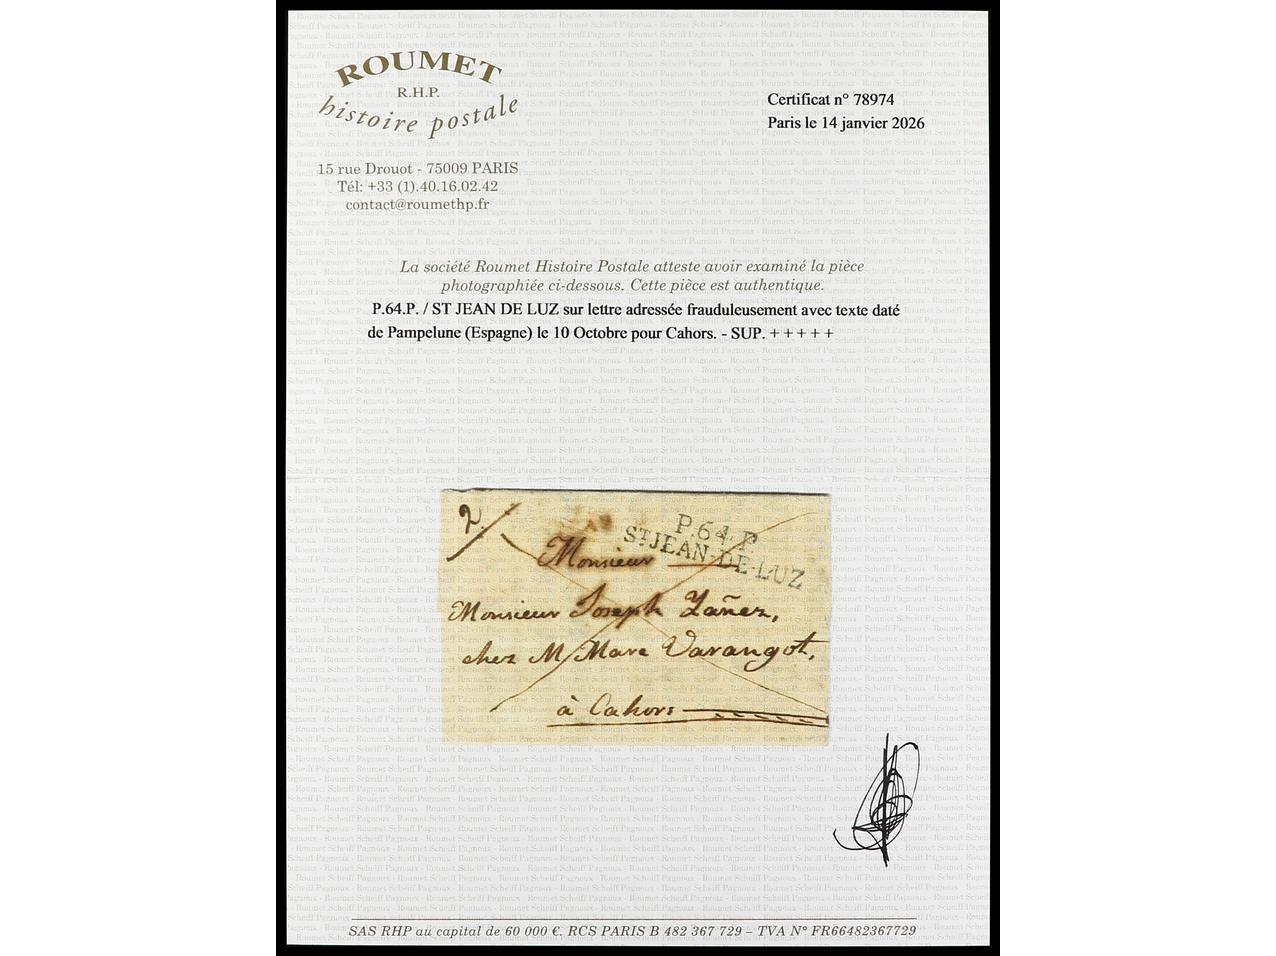 ROUMET
R.H.P.
histoire postale
15 rue Drouot - 75009 PARIS
Tél: +33 (1).40.16.02.42
contact@roumethp.fr
Certificat n° 78974
Paris le 14 janvier 2026
La société Roumet Histoire Postale atteste avoir examiné la pièce
photographiée ci-dessous. Cette pièce est authentique.
P.64.P. / ST JEAN DE LUZ sur lettre adressée frauduleusement avec texte daté
de Pampelune (Espagne) le 10 Octobre pour Cahors. - SUP. + + + + +
2
P.64.P
ST JEAN-DE-LUZ
Monsieur
Monsieur Joseph Yañez,
chez M Marc Varangot,
à Cahors
SAS RHP au capital de 60 000 €. RCS PARIS B 482 367 729 – TVA N° FR66482367729